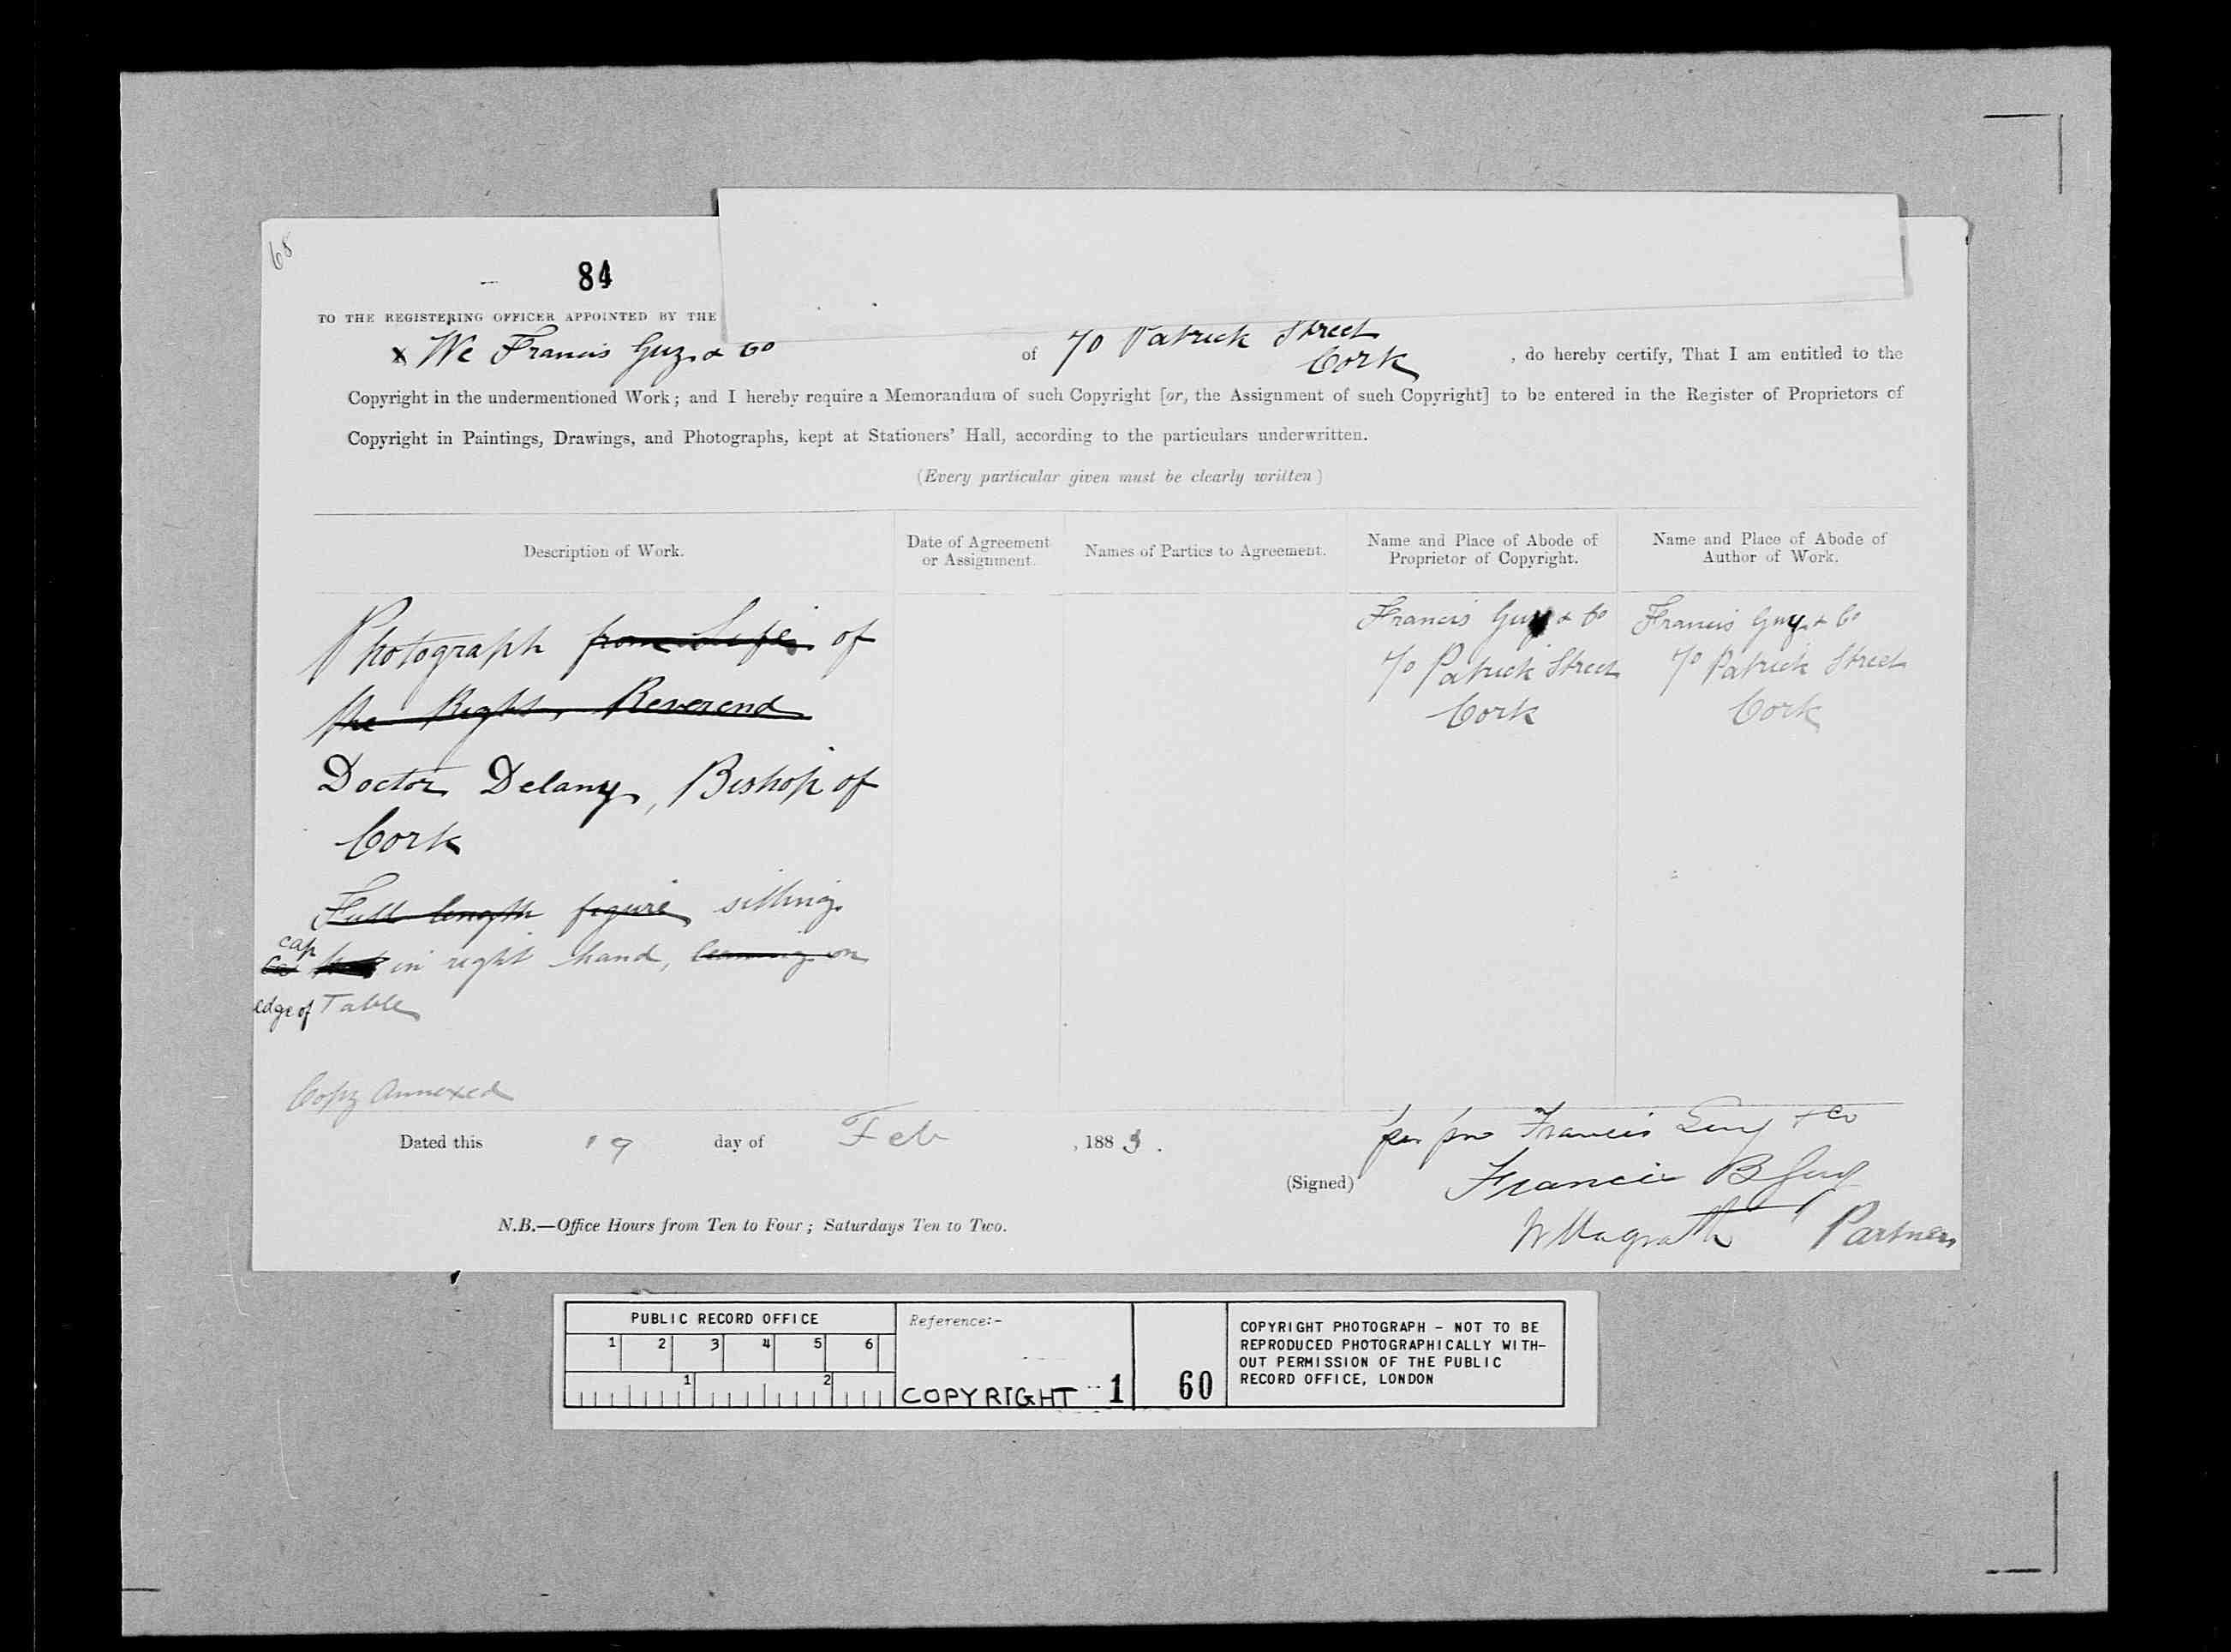 68
84
TO THE REGISTERING OFFICER APPOINTED BY THE
x We Francis Guy & Co of 70 Patrick Street
Cork , do hereby certify, That I am entitled to the
Copyright in the undermentioned Work; and I hereby require a Memorandum of such Copyright [or, the Assignment of such Copyright] to be entered in the Register of Proprietors of
Copyright in Paintings, Drawings, and Photographs, kept at Stationers' Hall, according to the particulars underwritten.
(Every particular given must be clearly written)
Description of Work.
Date of Agreement
or Assignment.
Names of Parties to Agreement.
Name and Place of Abode of
Proprietor of Copyright.
Name and Place of Abode of
Author of Work.
Photograph from Life of
the Right Reverend
Doctor Delany, Bishop of
Cork
Full length figure sitting
cap
in right hand, leaning on
edge of Table
Copy Annexed
Francis Guy & Co
70 Patrick Street
Cork
Francis Guy & Co
70 Patrick Street
Cork
Dated this 19 day of Feb , 1883.
per pro Francis Guy & Co
(Signed) Francis B Guy
W Magrath Partners
N.B.—Office Hours from Ten to Four; Saturdays Ten to Two.
PUBLIC RECORD OFFICE
1 2 3 4 5 6
1 2
Reference:-
COPYRIGHT 1 60
COPYRIGHT PHOTOGRAPH - NOT TO BE
REPRODUCED PHOTOGRAPHICALLY WITH-
OUT PERMISSION OF THE PUBLIC
RECORD OFFICE, LONDON